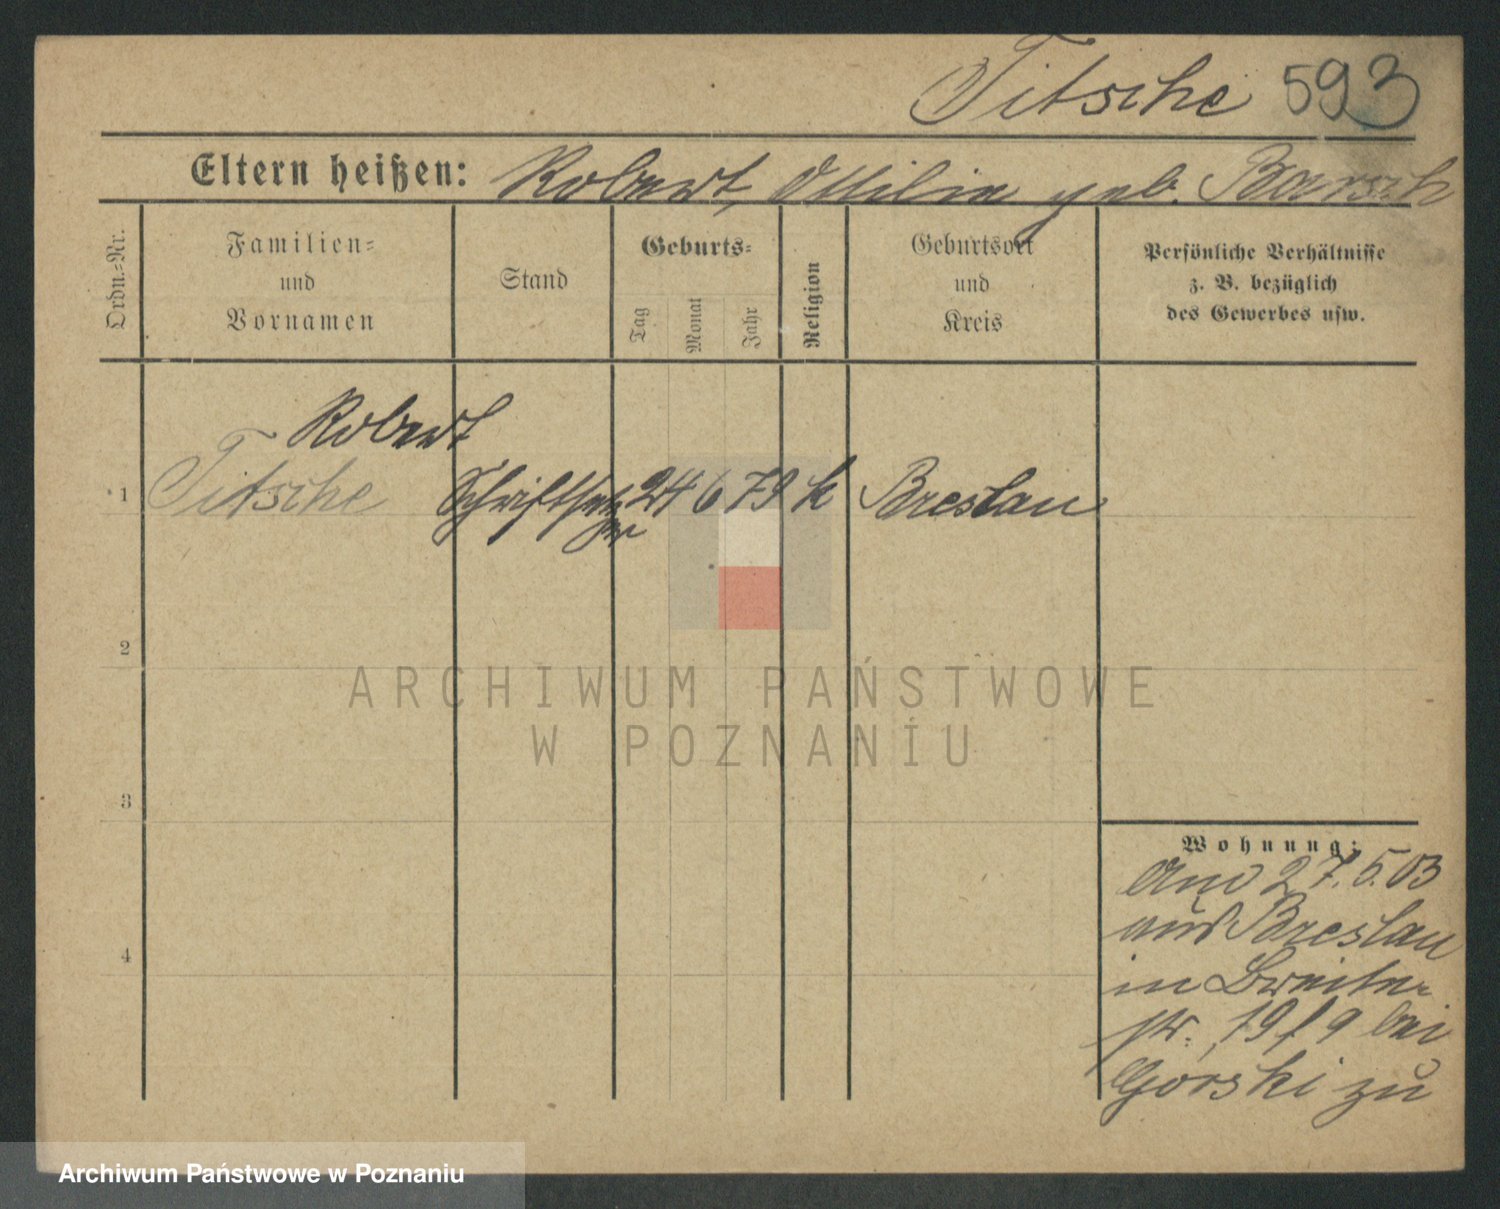 Titsche 593
Eltern heißen: Robert, Ottilie geb. Barsch
Ordn.-Nr.
Familien-
und
Vornamen
Stand
Geburts-
Tag
Monat
Jahr
Religion
Geburtsort
und
Kreis
Persönliche Verhältnisse
z. B. bezüglich
des Gewerbes usw.
Robert
1 Titsche Schriftset 24 6 79 k Breslau
zer
2
ARCHIWUM PAŃSTWOWE
W POZNANIU
3
Wohnung:
am 27.5.03
aus Breslau
4
in Breite-
str. 19 / 9 bei
Gorski zu
Archiwum Państwowe w Poznaniu